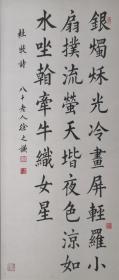 銀燭秌光冷畫屏輕羅小
扇撲流螢天堦夜色涼如
水坐看牽牛織女星
杜牧詩 八十老人徐之謙